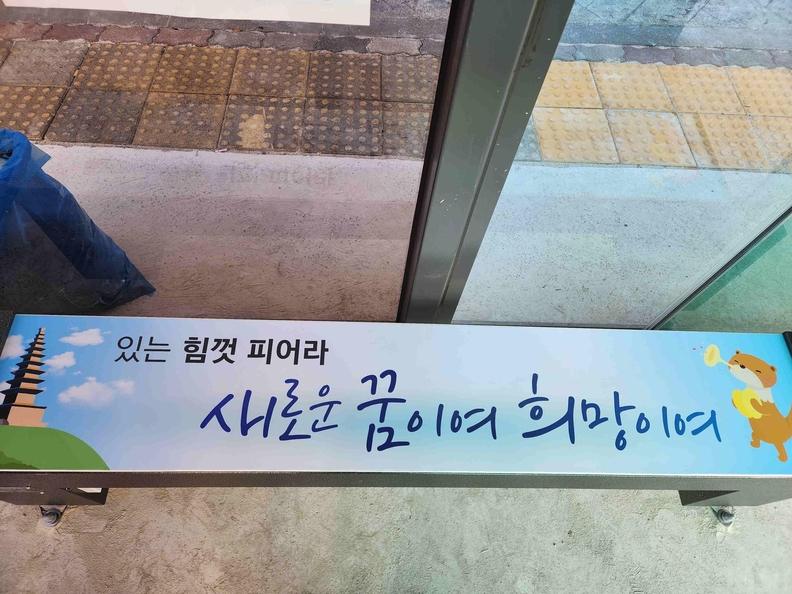 있는 힘껏 피어라
새로운 꿈이여 희망이여